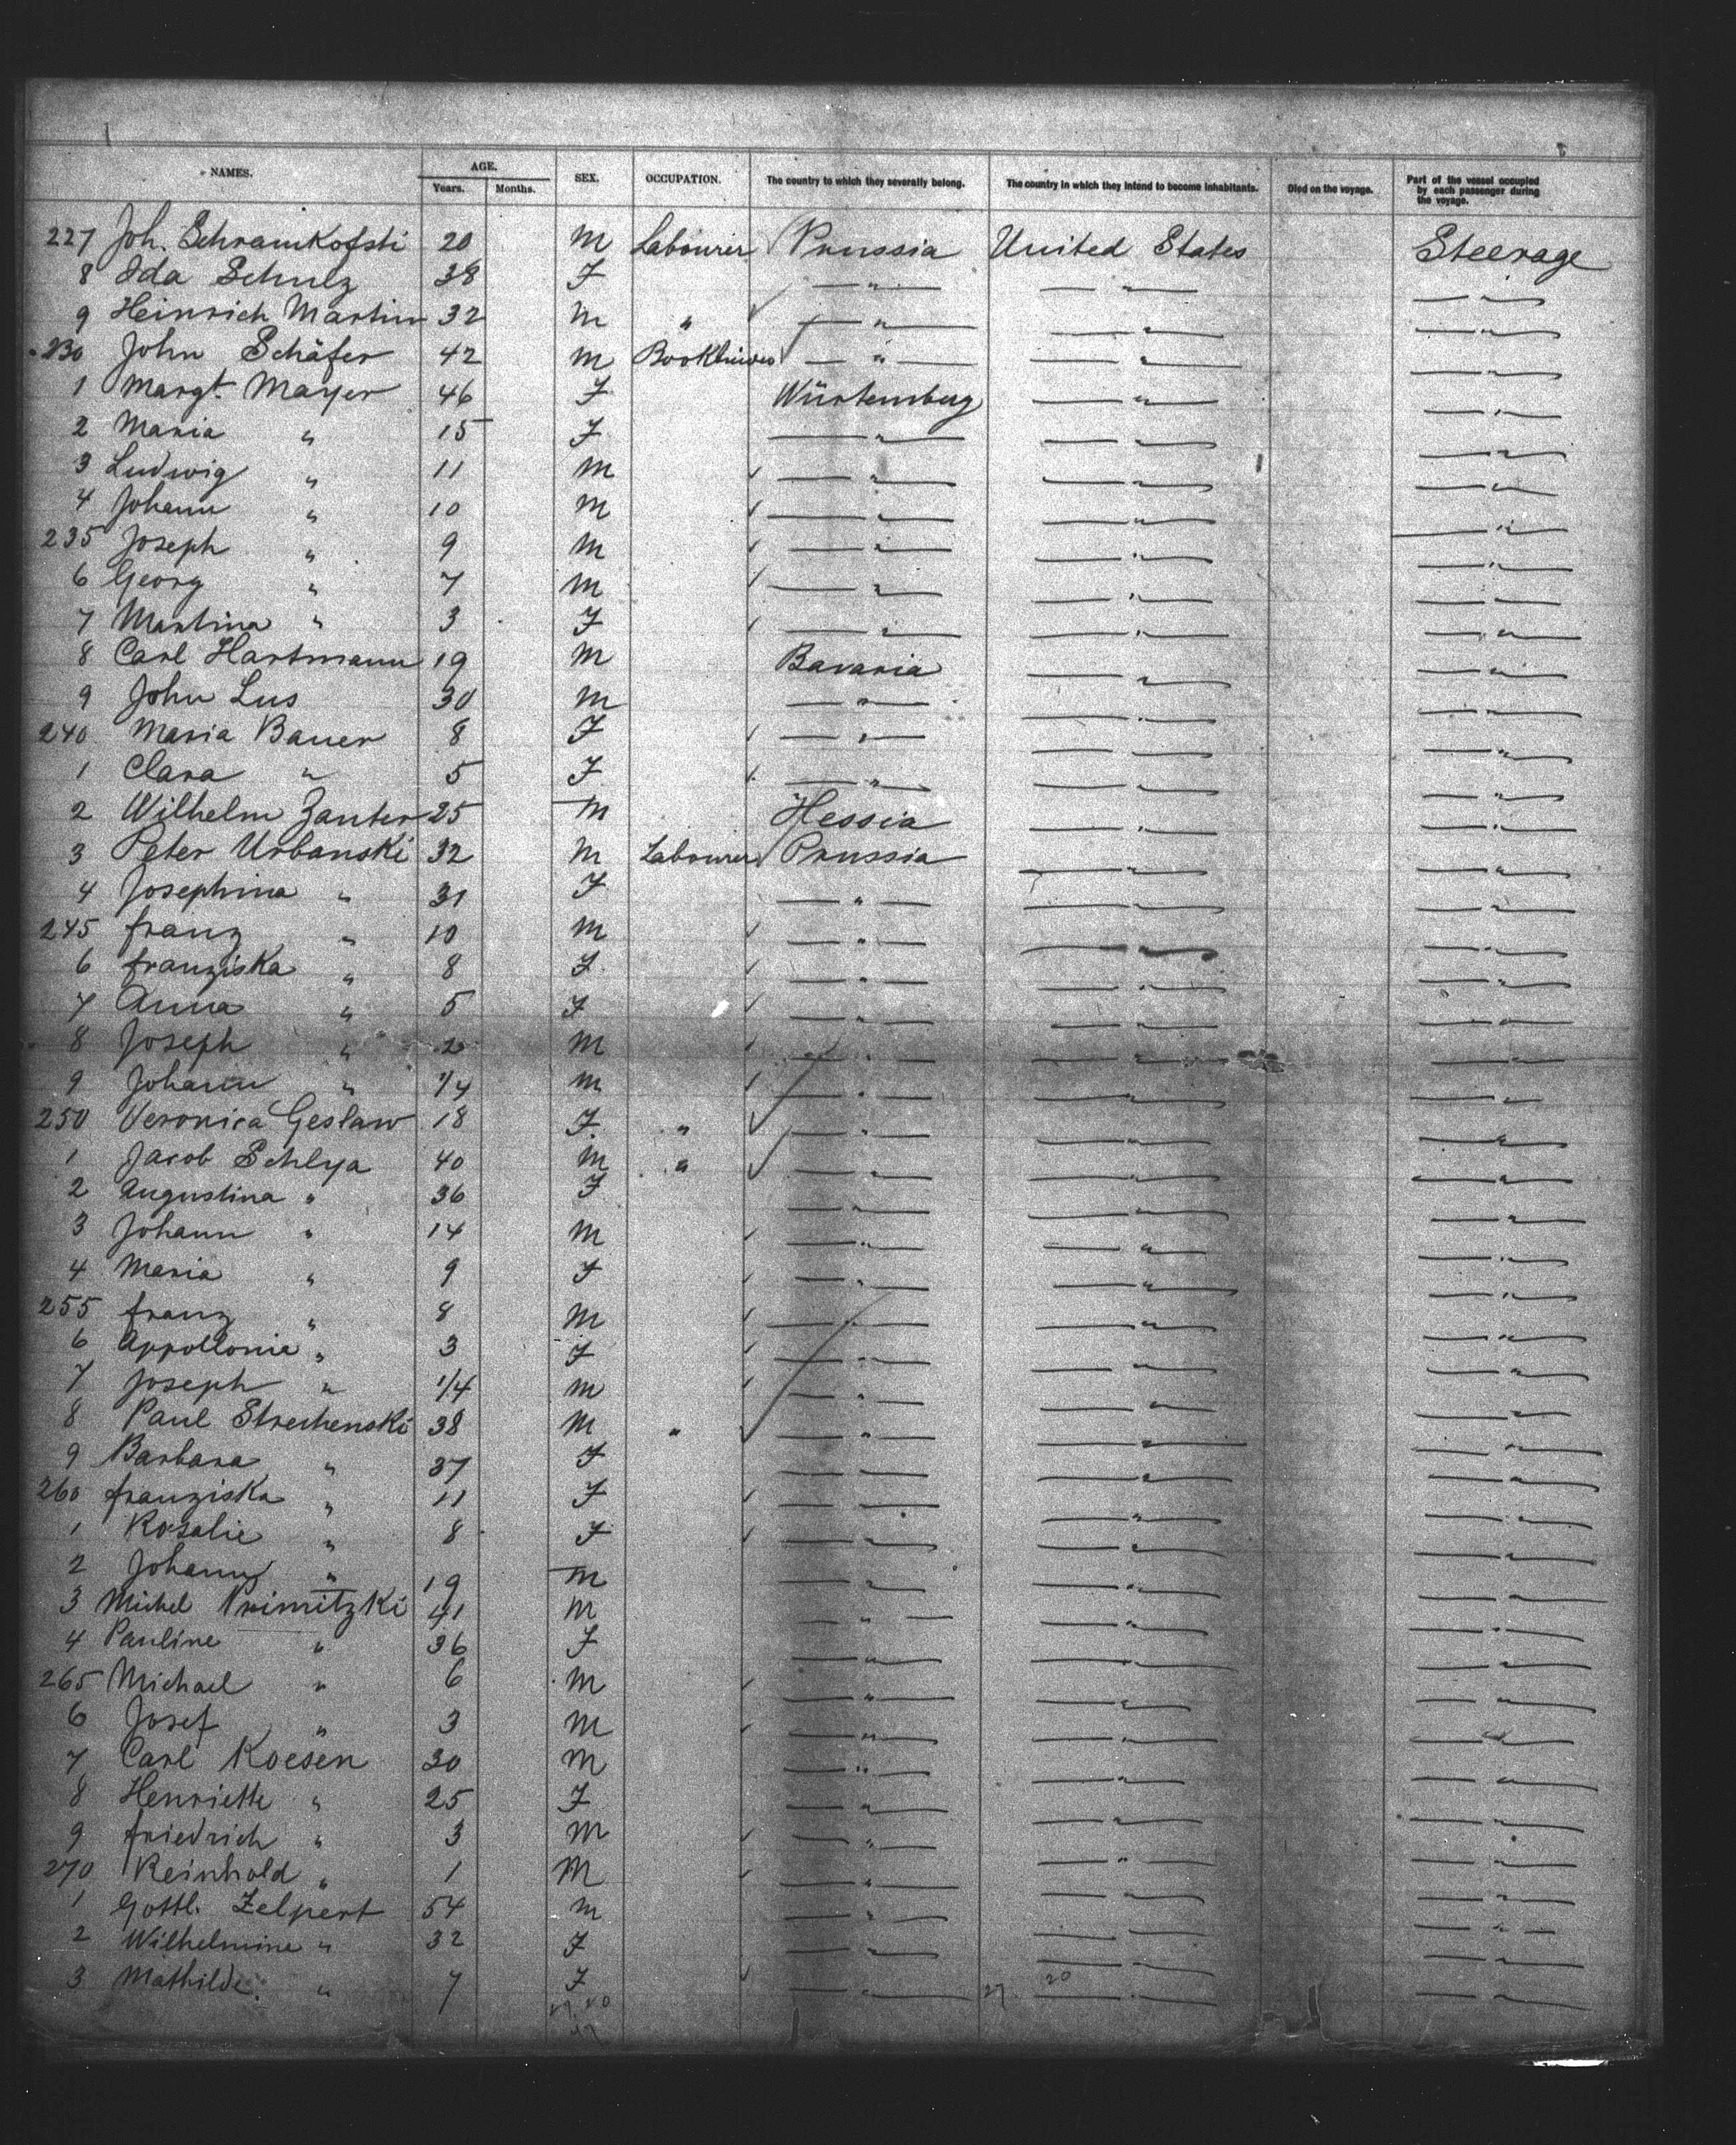 NAMES. AGE. Years. Months. SEX. OCCUPATION. The country to which they severally belong. The country in which they intend to become inhabitants. Died on the voyage. Part of the vessel occupied by each passenger during the voyage.
227 Joh. Schramkofski 20 M Labourer Prussia United States Steerage
8 Ida Schulz 38 F — " — — " — — " —
9 Heinrich Martin 32 M " — " — — " — — " —
230 John Schäfer 42 M — " — — " — — " —
1 Margt. Mayer 46 F Würtemberg — " — — " —
2 Maria " 15 F — " — — " — — " —
3 Ludwig " 11 M — " — — " — — " —
4 Johann " 10 M — " — — " — — " —
235 Joseph " 9 M — " — — " — — " —
6 Georg " 7 M — " — — " — — " —
7 Martina " 3 F — " — — " — — " —
8 Carl Hartmann 19 M Bavaria — " — — " —
9 John Lus 30 M — " — — " — — " —
240 Maria Bauer 8 F — " — — " — — " —
1 Clara " 5 F — " — — " — — " —
2 Wilhelm Zanter 25 M Hessia — " — — " —
3 Peter Urbanski 32 M Labourer Prussia — " — — " —
4 Josephina " 31 F — " — — " — — " —
245 Franz " 10 M — " — — " — — " —
6 Franziska " 8 F — " — — " — — " —
7 Anna " 5 F — " — — " — — " —
8 Joseph " 2 M — " — — " — — " —
9 Johann " 1/4 M — " — — " — — " —
250 Veronica Geslaw 18 F " — " — — " — — " —
1 Jacob Schlya 40 M " — " — — " — — " —
2 Augustina " 36 F — " — — " — — " —
3 Johann " 14 M — " — — " — — " —
4 Maria " 9 F — " — — " — — " —
255 Franz " 8 M — " — — " — — " —
6 Appollonia " 3 F — " — — " — — " —
7 Joseph " 1/4 M — " — — " — — " —
8 Paul Strechenski 38 M " — " — — " — — " —
9 Barbara " 37 F — " — — " — — " —
260 Franziska " 11 F — " — — " — — " —
1 Rosalie " 8 F — " — — " — — " —
2 Johann " 19 M — " — — " — — " —
3 Michel Primitzki 41 M — " — — " — — " —
4 Pauline " 36 F — " — — " — — " —
265 Michael " 6 M — " — — " — — " —
6 Josef " 3 M — " — — " — — " —
7 Carl Koesen 30 M — " — — " — — " —
8 Henriette " 25 F — " — — " — — " —
9 Friedrich " 3 M — " — — " — — " —
270 Reinhold " 1 M — " — — " — — " —
1 Gottl. Zelpert 54 M — " — — " — — " —
2 Wilhelmine " 32 F — " — — " — — " —
3 Mathilde " 7 F — " — — " — — " —
27 20